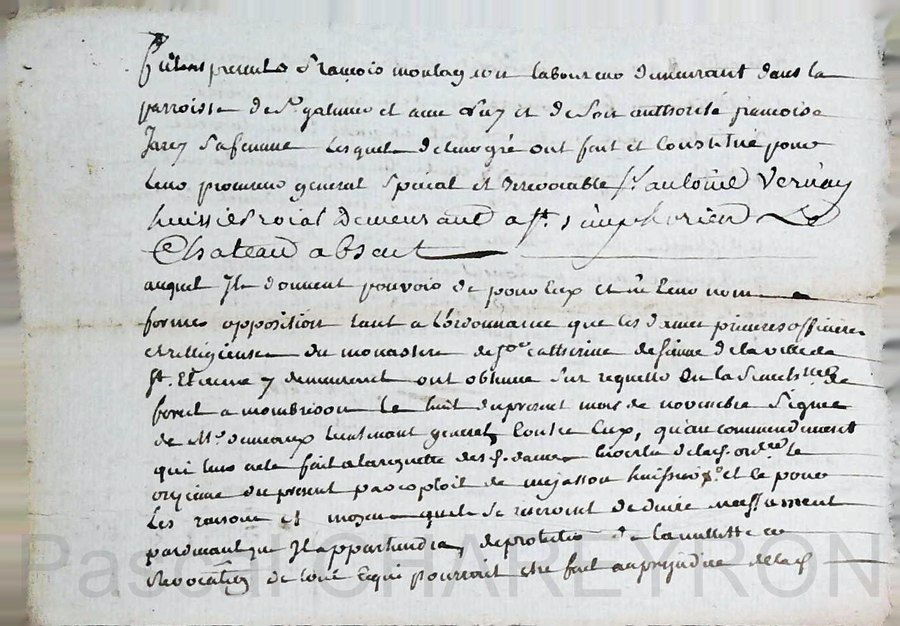 furent presents François montagnon laboureur demeurant dans la
parroisse de St galmier et avec luy et de son authorité françoise
Jarez sa femme lesquels de leur gré ont fait et constitué pour
leur procureur general spécial et irrevocable Sr antoine Vernay
huissier roial demeurant a St simphorien Le
Chateau absent
auquel Ils donnent pouvoir de pour Eux et en leur nom
former opposition tant a l'ordonnance que les dames prieures officieres
et religieuse du monastere de Ste catherine de sienne de la ville de
St Etienne y demeurent ont obtenue sur requette en la Senechée de
forest a montbrison le huit du present mois de novembre signée
de Mr demeaux lieutenant general contre Eux, qu'au commendement
qui leur a ete fait a la requette des d. dames en vertu de lad. ordce le
onzieme du present par exploit de mejasson huissier et ce pour
les raisons et moyens quels se reservent de deduire
pardevant qu Il appartiendra, de protester de la nullitté et
revocation de tout ce qui pourroit etre fait au prejudice de lad
Pascal CHAREYRON